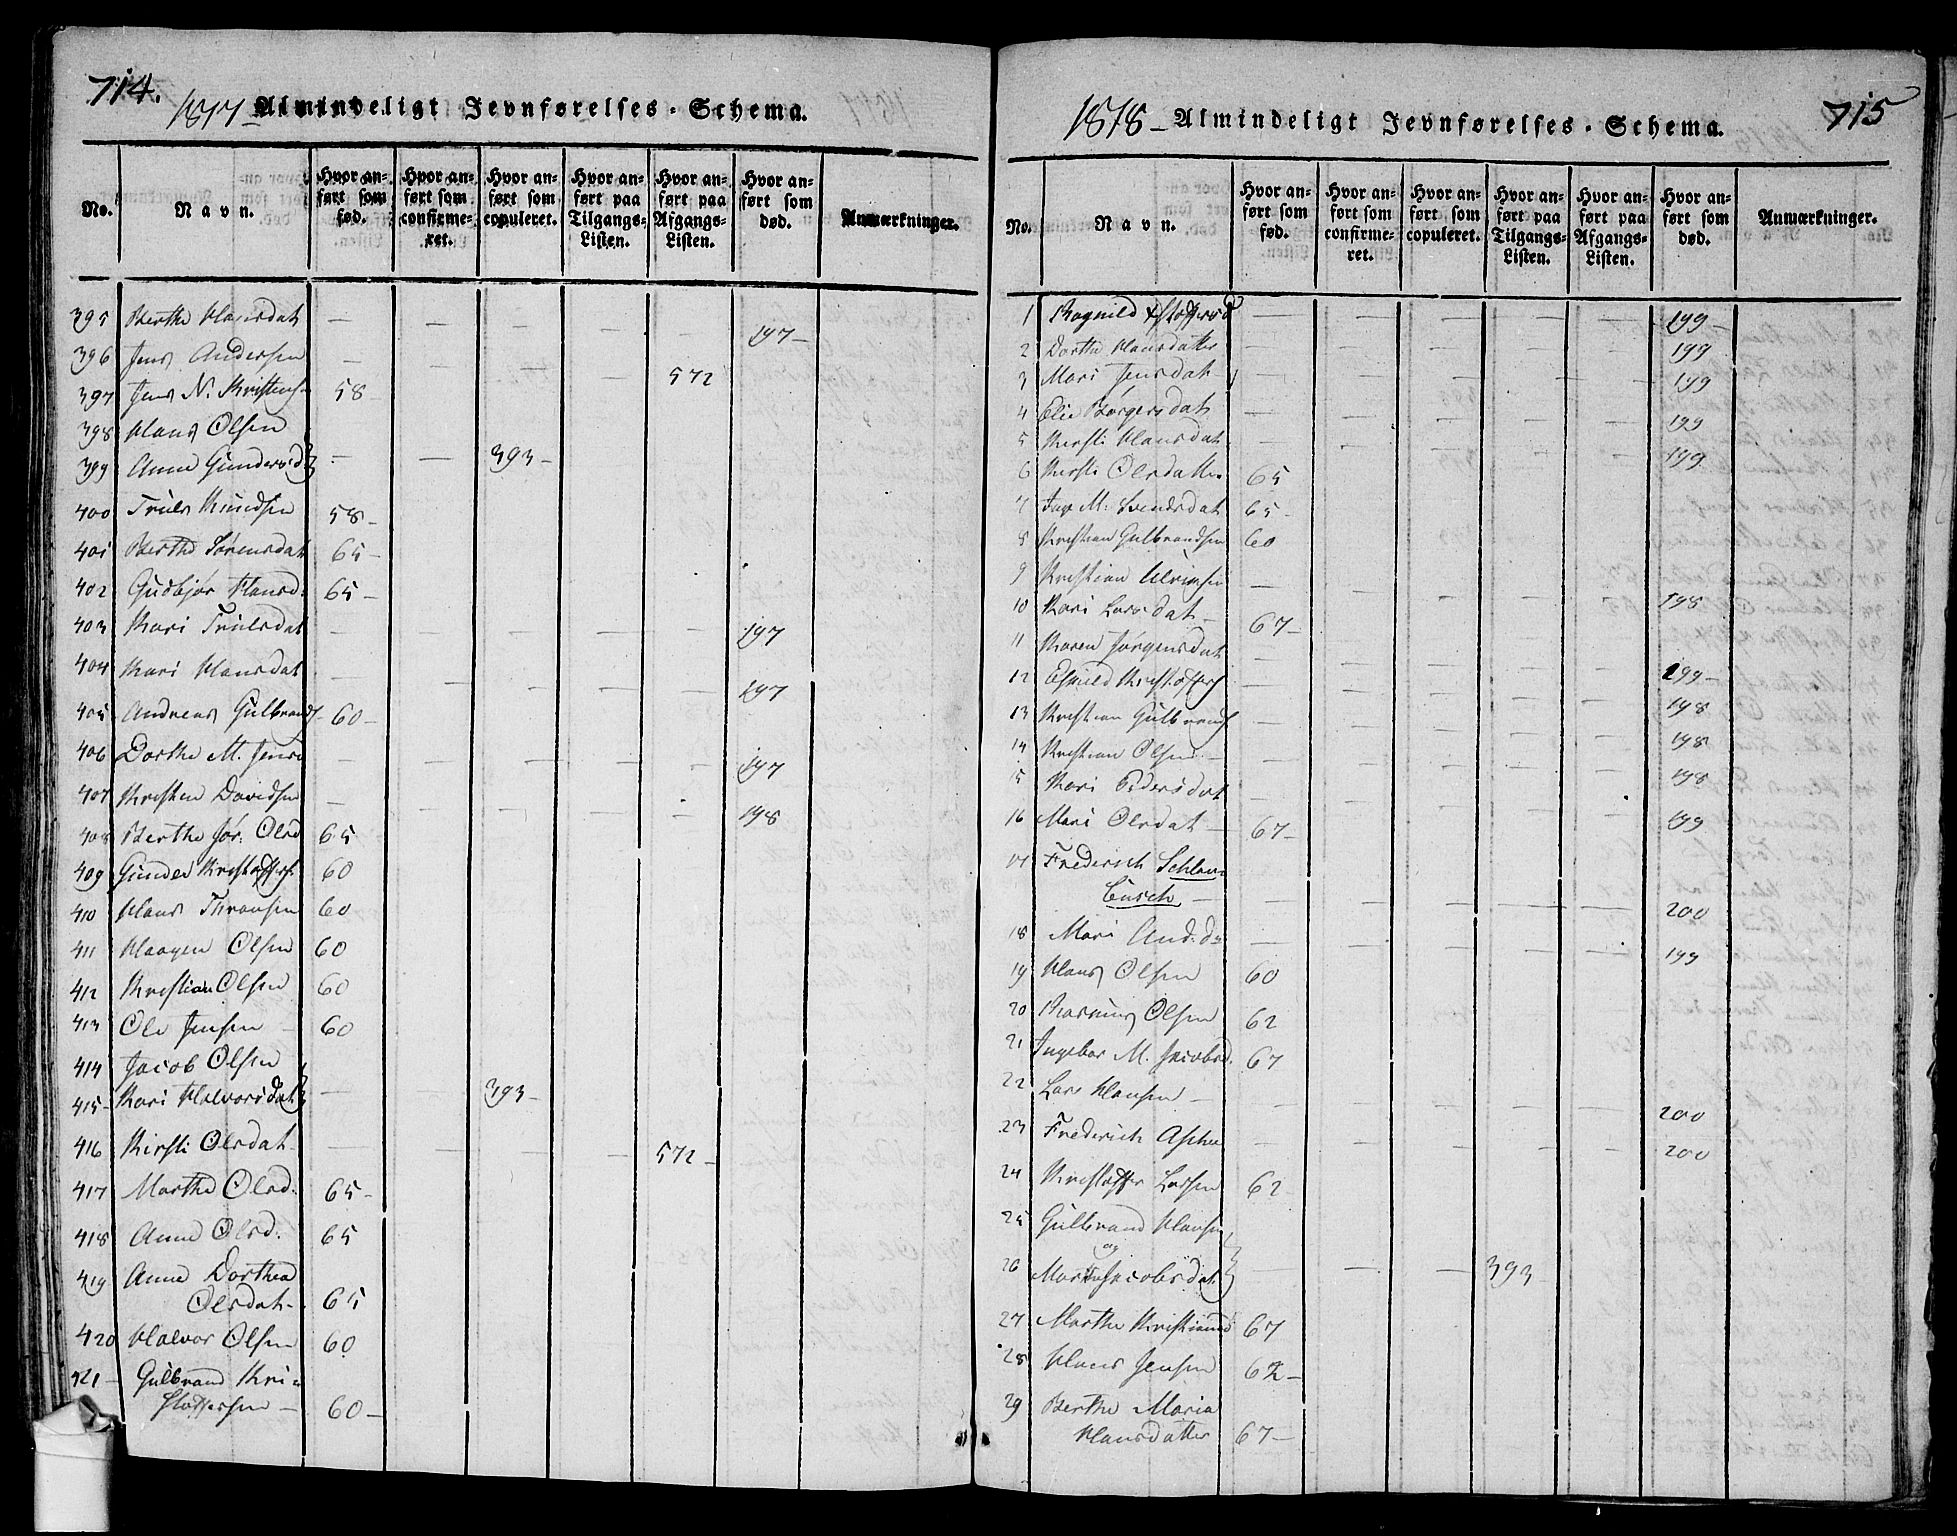 714.
1817 – Almindeligt Jevnførelses-Schema.
No. Navn. Hvor anført som fød. Hvor anført som confirmeret. Hvor anført som copuleret. Hvor anført paa Tilgangs-Listen. Hvor anført paa Afgangs-Listen. Hvor anført som død. Anmærkninger.
395 Berthe Hansdat – – – – – 197 –
396 Jens Andersen – – – – 572
397 Jens N. Kristens 58 –
398 Hans Olsen
399 Anne Gundersd – – 393 –
400 Truls Knudsen 58 –
401 Berthe Sørensdat 65 –
402 Gudbjør Hansd. 65 –
403 Kari Trulsdat – – – – – 197
404 Kari Hansdat – – – – – 197
405 Andreas Gulbrands 60 –
406 Dorthe M. Jens – – – – – 197
407 Kristen Davidsen – – – – – 198
408 Berthe Jør. Olsd 65
409 Gunder Kristoffers 60
410 Hans Thronsen 60
411 Haagen Olsen 60
412 Kristian Olsen 60
413 Ole Jensen – 60
414 Jacob Olsen
415 – Kari Halvorsdat – – 393 –
416 Kirsti Olsdat – – – – 572 –
417 Marthe Olsd. 65 –
418 Anne Olsd. 65
419 Anne Dorthea
Olsdat – 65
420 Halvor Olsen 60
421 – Gulbrand Kri-
stoffersen – 60 –
715
1818 – Almindeligt Jevnførelses-Schema.
No. Navn. Hvor anført som fød. Hvor anført som confirmeret. Hvor anført som copuleret. Hvor anført paa Tilgangs-Listen. Hvor anført paa Afgangs-Listen. Hvor anført som død. Anmærkninger.
1 Ragnild – – – – – 199 –
2 Dorthe Hansdatter – – – – – 199
3 Mari Jensdat – – – – – 199
4 Elie Børgersdat – – – – – 199
5 Kersti Hansdat – – – – – 199
6 Kersti Olsdatter 65
7 Inge M. Svendsdat 65 –
8 Kristian Gulbrandsen 60
9 Kristian – – – – – 198
10 Kari Larsdat – 67 –
11 Karen Jørgensdat – – – – – 199 –
12 Kristoffers – – – – – 198
13 Kristian Gulbrands – – – – – 198
14 Kristian Olsen – – – – – – 198
15 Kari Pedersdat – – – – – 199
16 Mari Olsdat – 67 –
17 Frederich
Busch – – – – – – 200
18 Mari And. d – – – – – 199
19 Hans Olsen 60
20 Rasmus Olsen 62
21 Ingebor M. Jacobsd. 67
22 Lars Hansen – – – – – – 200
23 Frederich – – – – – 200
24 Kristoffer Larsen 62
25 Gulbrand Hansen
og
26 Marthe Jacobsdat – – – 393 –
27 Marthe Kristiansd 67
28 Hans Jensen 62 –
29 Berthe Maria
Hansdatter 67 –